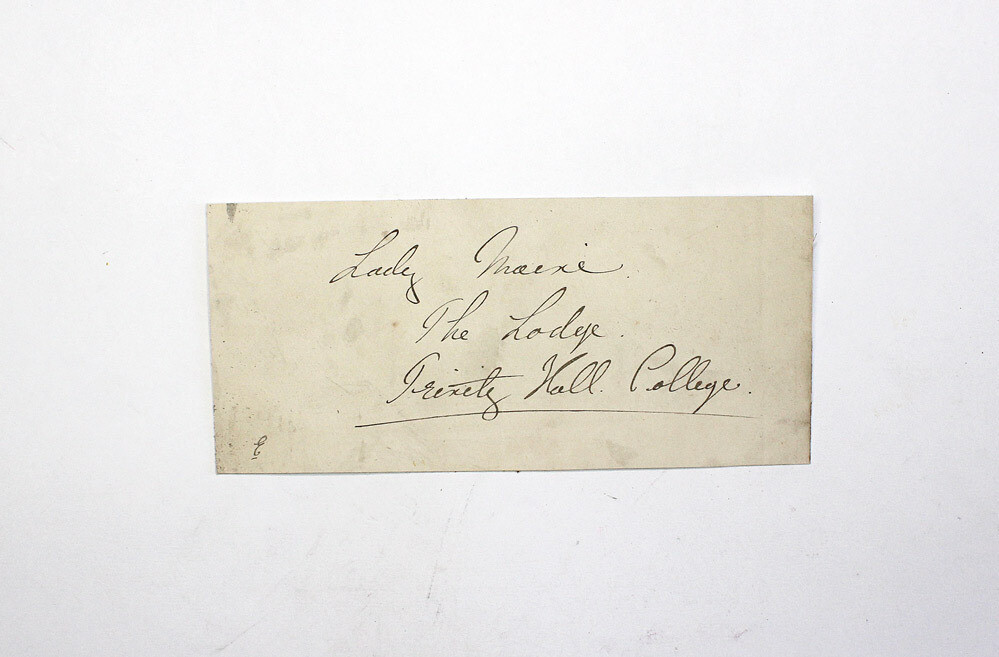 Lady Maine.
The Lodge.
Trinity Hall. College.
E